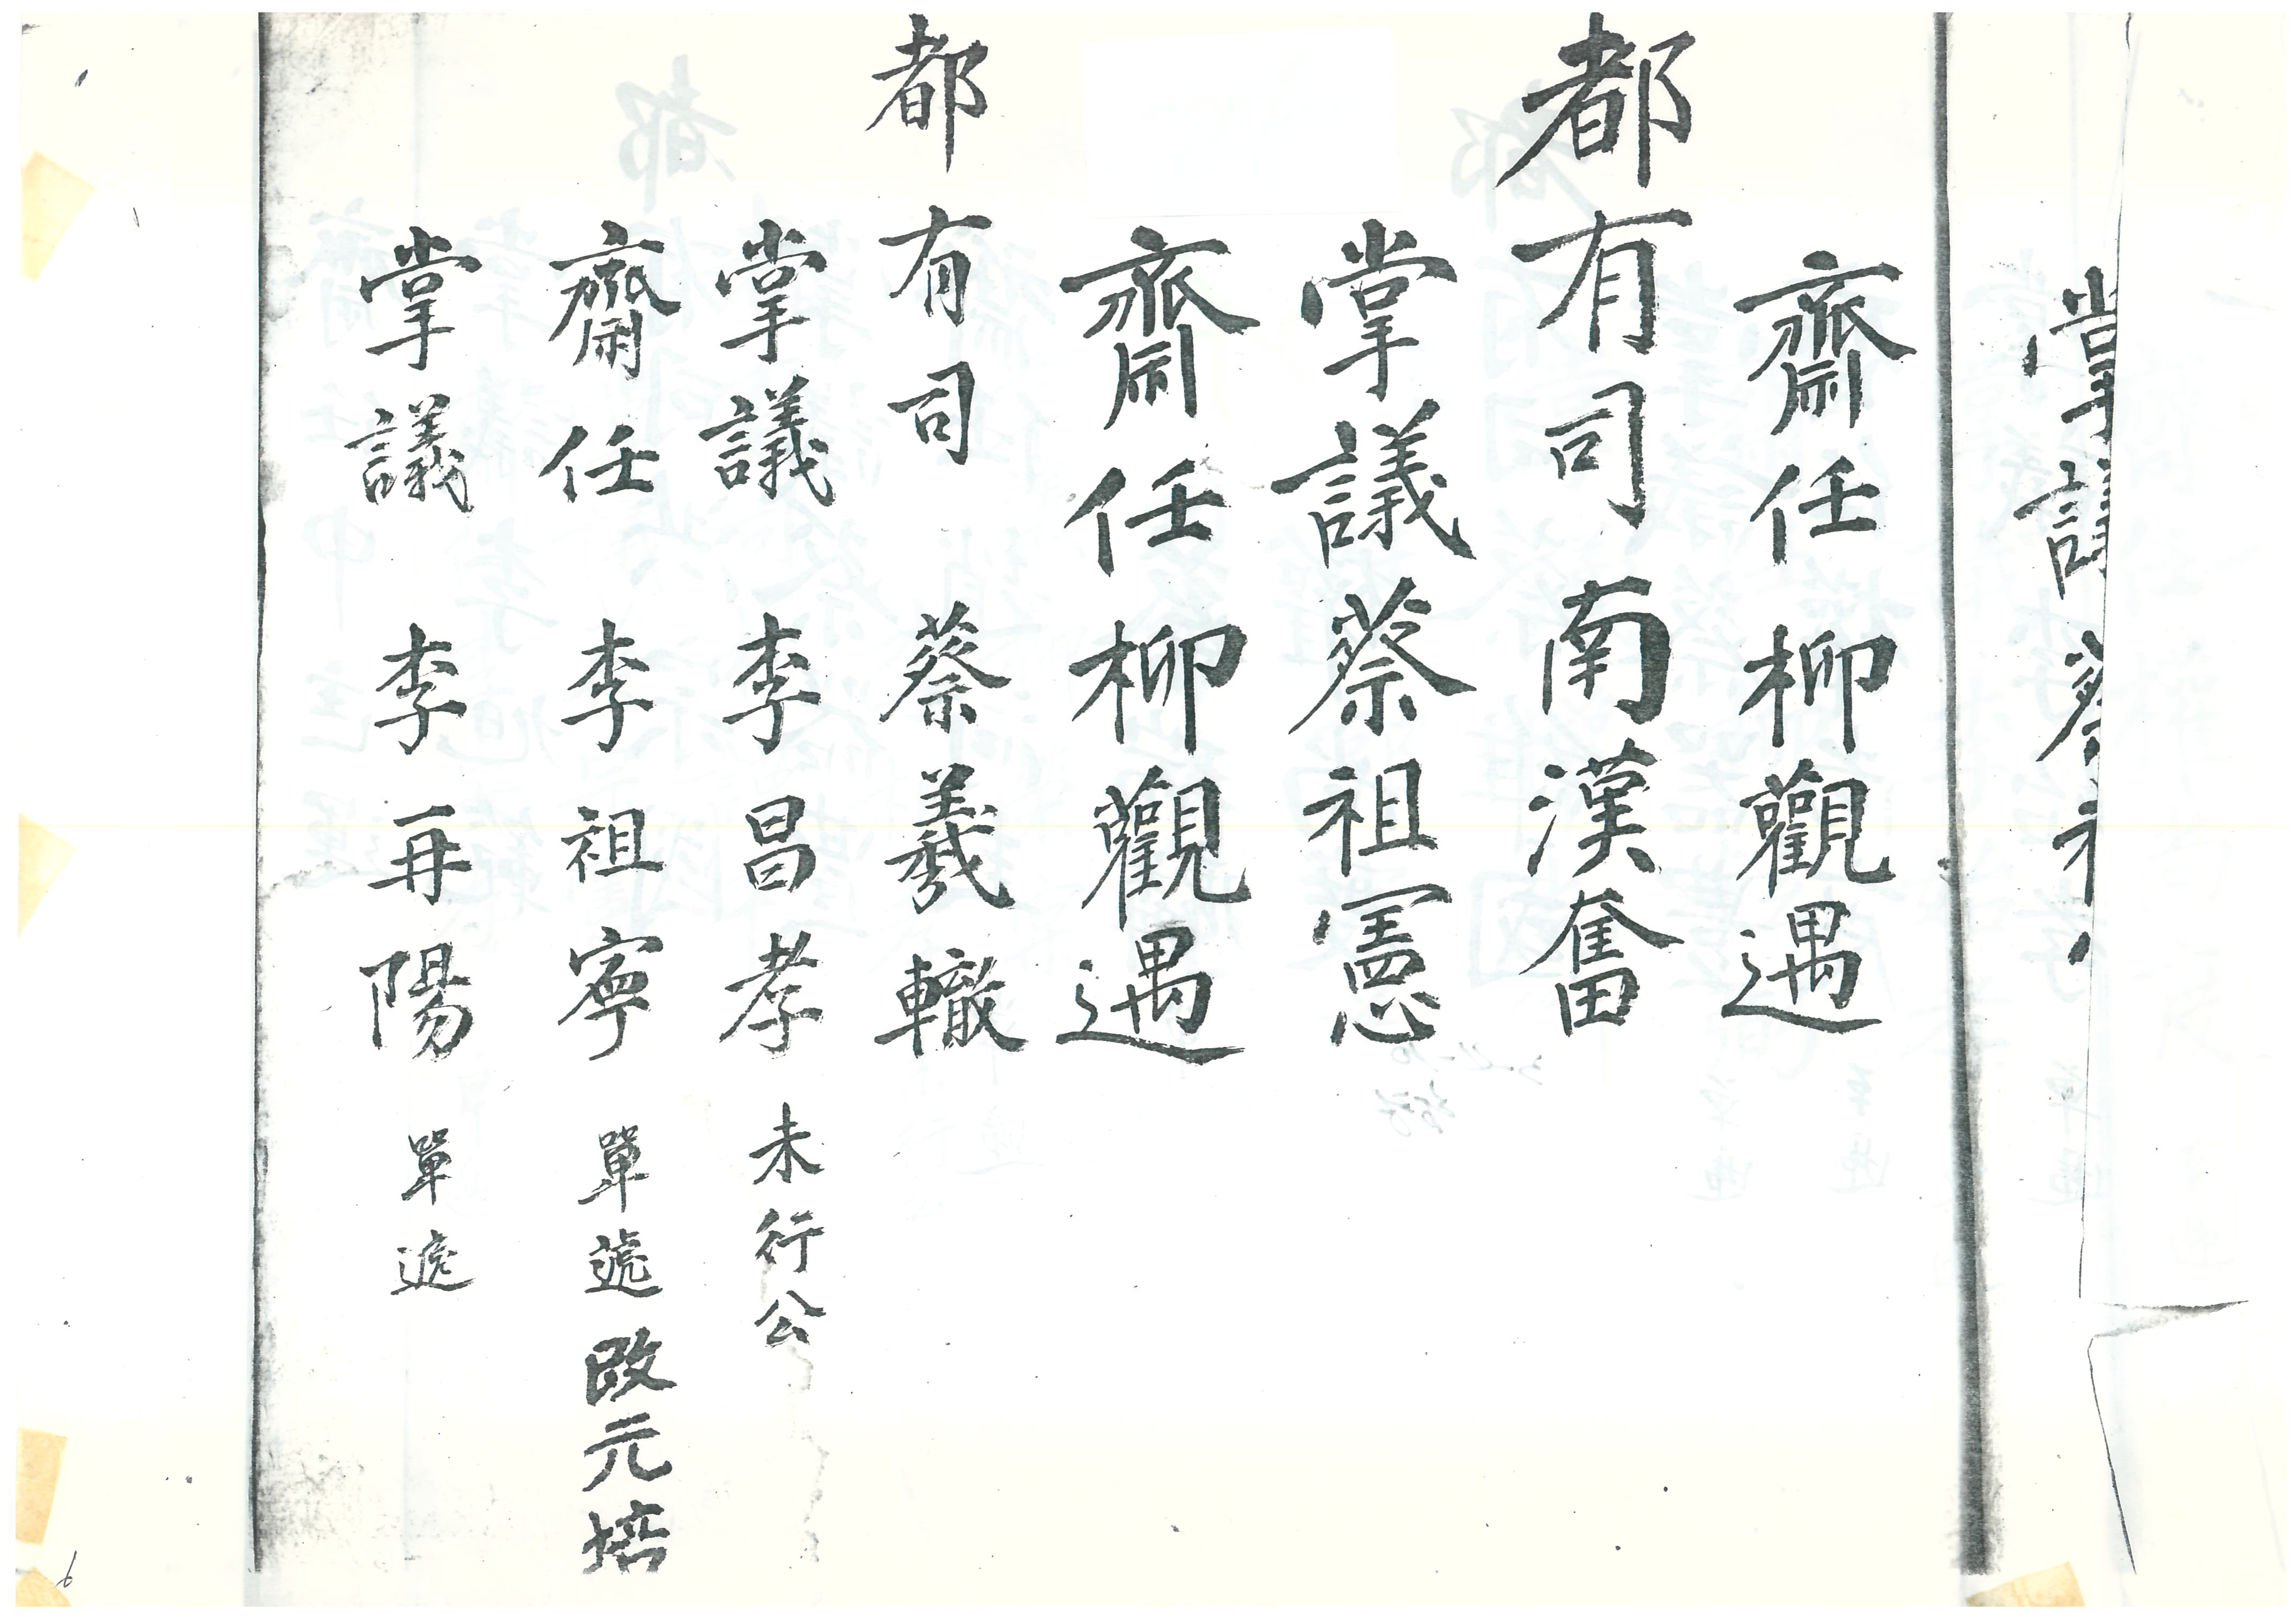 掌議蔡
齋任柳觀遇
都有司南漢奮
掌議蔡祖憲
齋任柳觀遇
都有司蔡羲轍
掌議李昌孝未行公
齋任李祖寧單遞改元培
掌議李再陽單遞